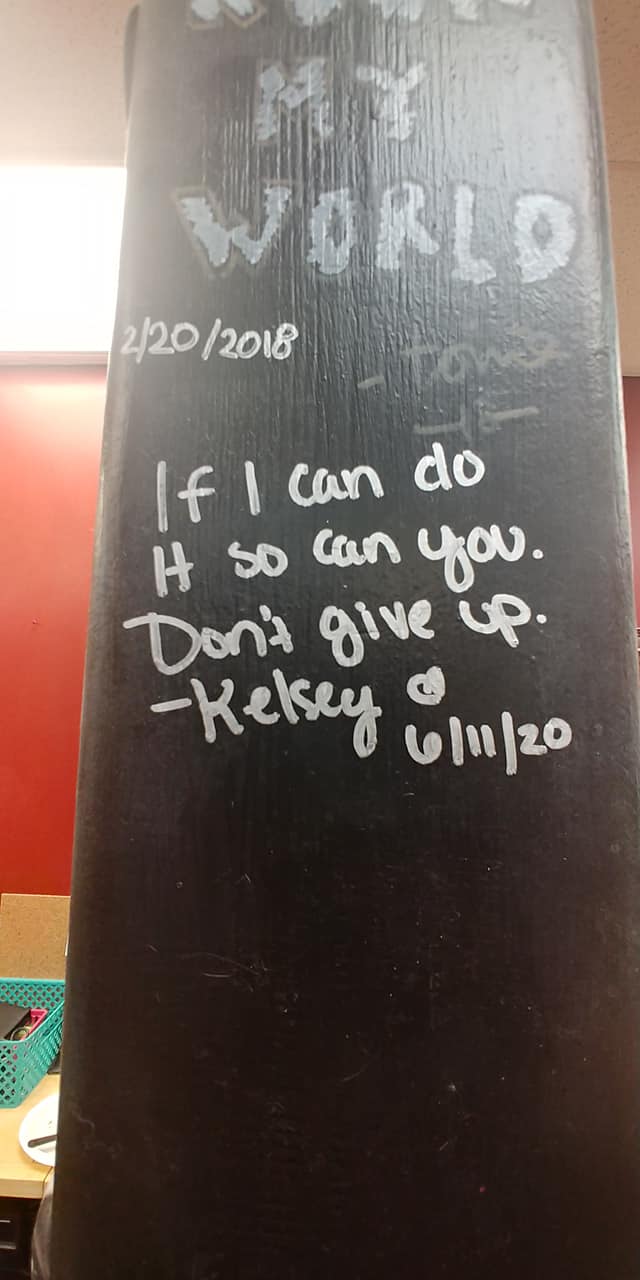 MY
WORLD
2/20/2018
If I can do
It so can you.
Don't give up.
-Kelsey
6/11/20